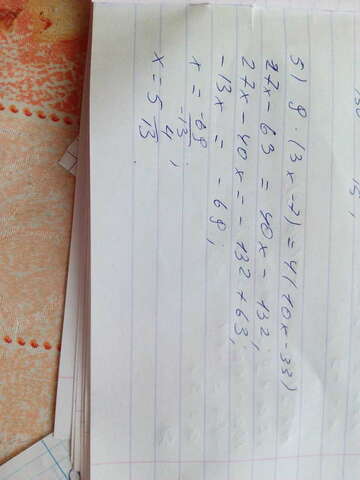 5) 9 · (3x - 7) = 4(10x - 33)
27x - 63 = 40x - 132;
27x - 40x = - 132 + 63;
- 13x = - 69;
x = -69/-13;
x = 5 4/13.